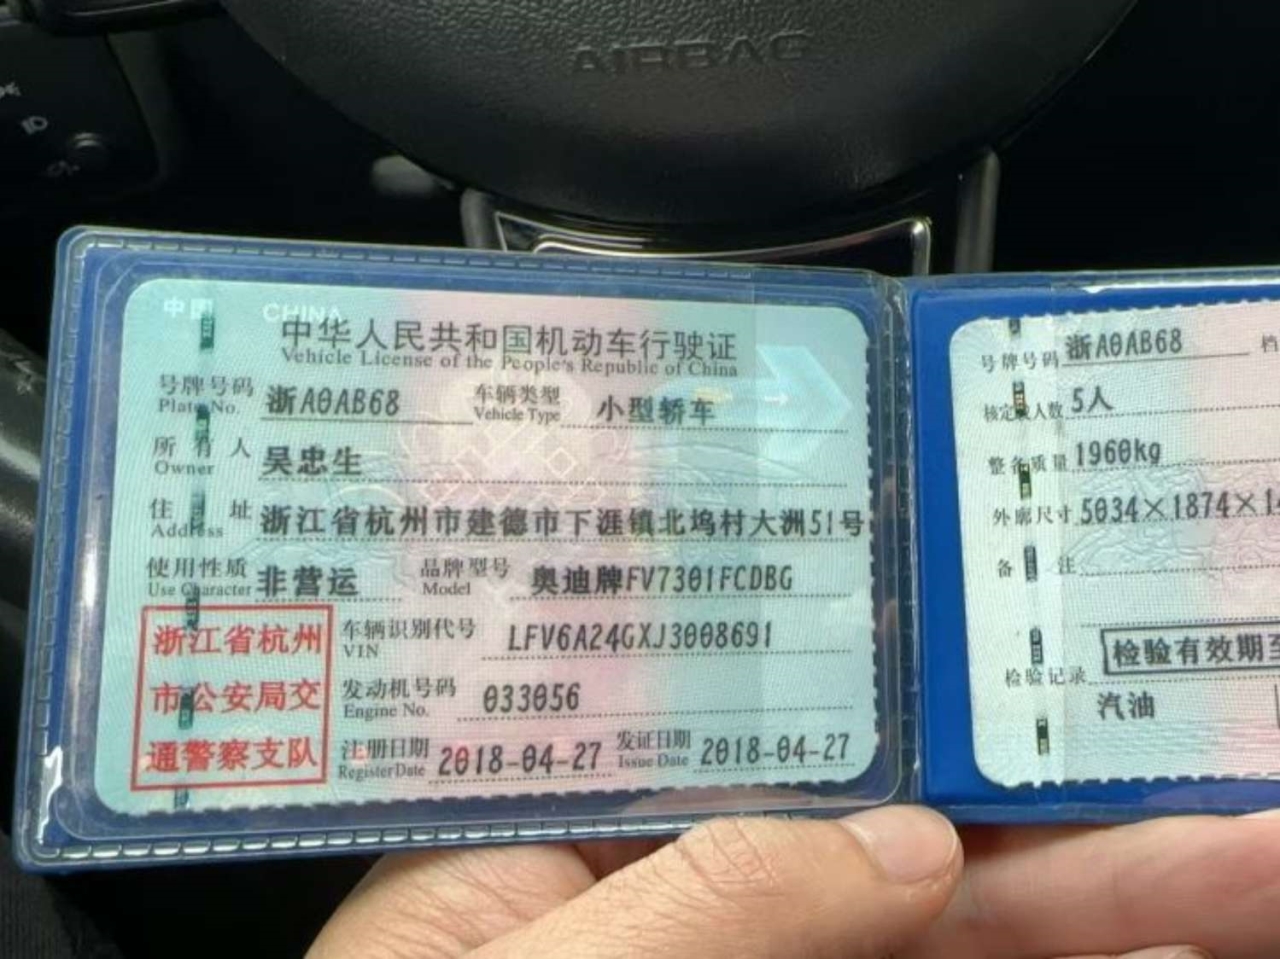 AIRBAG
中国 CHINA
中华人民共和国机动车行驶证
Vehicle License of the People's Republic of China
号牌号码 浙A0AB68 车辆类型 小型轿车
Plate No. Vehicle Type
所有人 吴忠生
Owner
住址 浙江省杭州市建德市下涯镇北坞村大洲51号
Address
使用性质 非营运 品牌型号 奥迪牌FV7301FCDBG
Use Character Model
浙江省杭州
市公安局交
通警察支队
车辆识别代号 LFV6A24GXJ3008691
VIN
发动机号码 033056
Engine No.
注册日期 2018-04-27 发证日期 2018-04-27
Register Date Issue Date
号牌号码 浙A0AB68 档
核定载人数 5人
整备质量 1960kg
外廓尺寸 5034×1874×1
备注
检验有效期至
检验记录
汽油